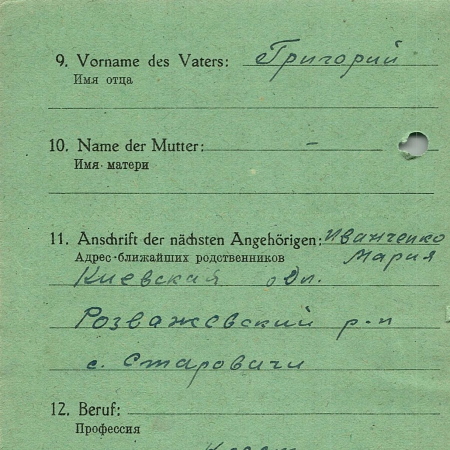 9. Vorname des Vaters: Григорий
Имя отца
10. Name der Mutter: –
Имя матери
11. Anschrift der nächsten Angehörigen: Иванченко
Адрес ближайших родственников Мария
Киевская обл.
Розважевский р-н
с. Старовичи
12. Beruf:
Профессия